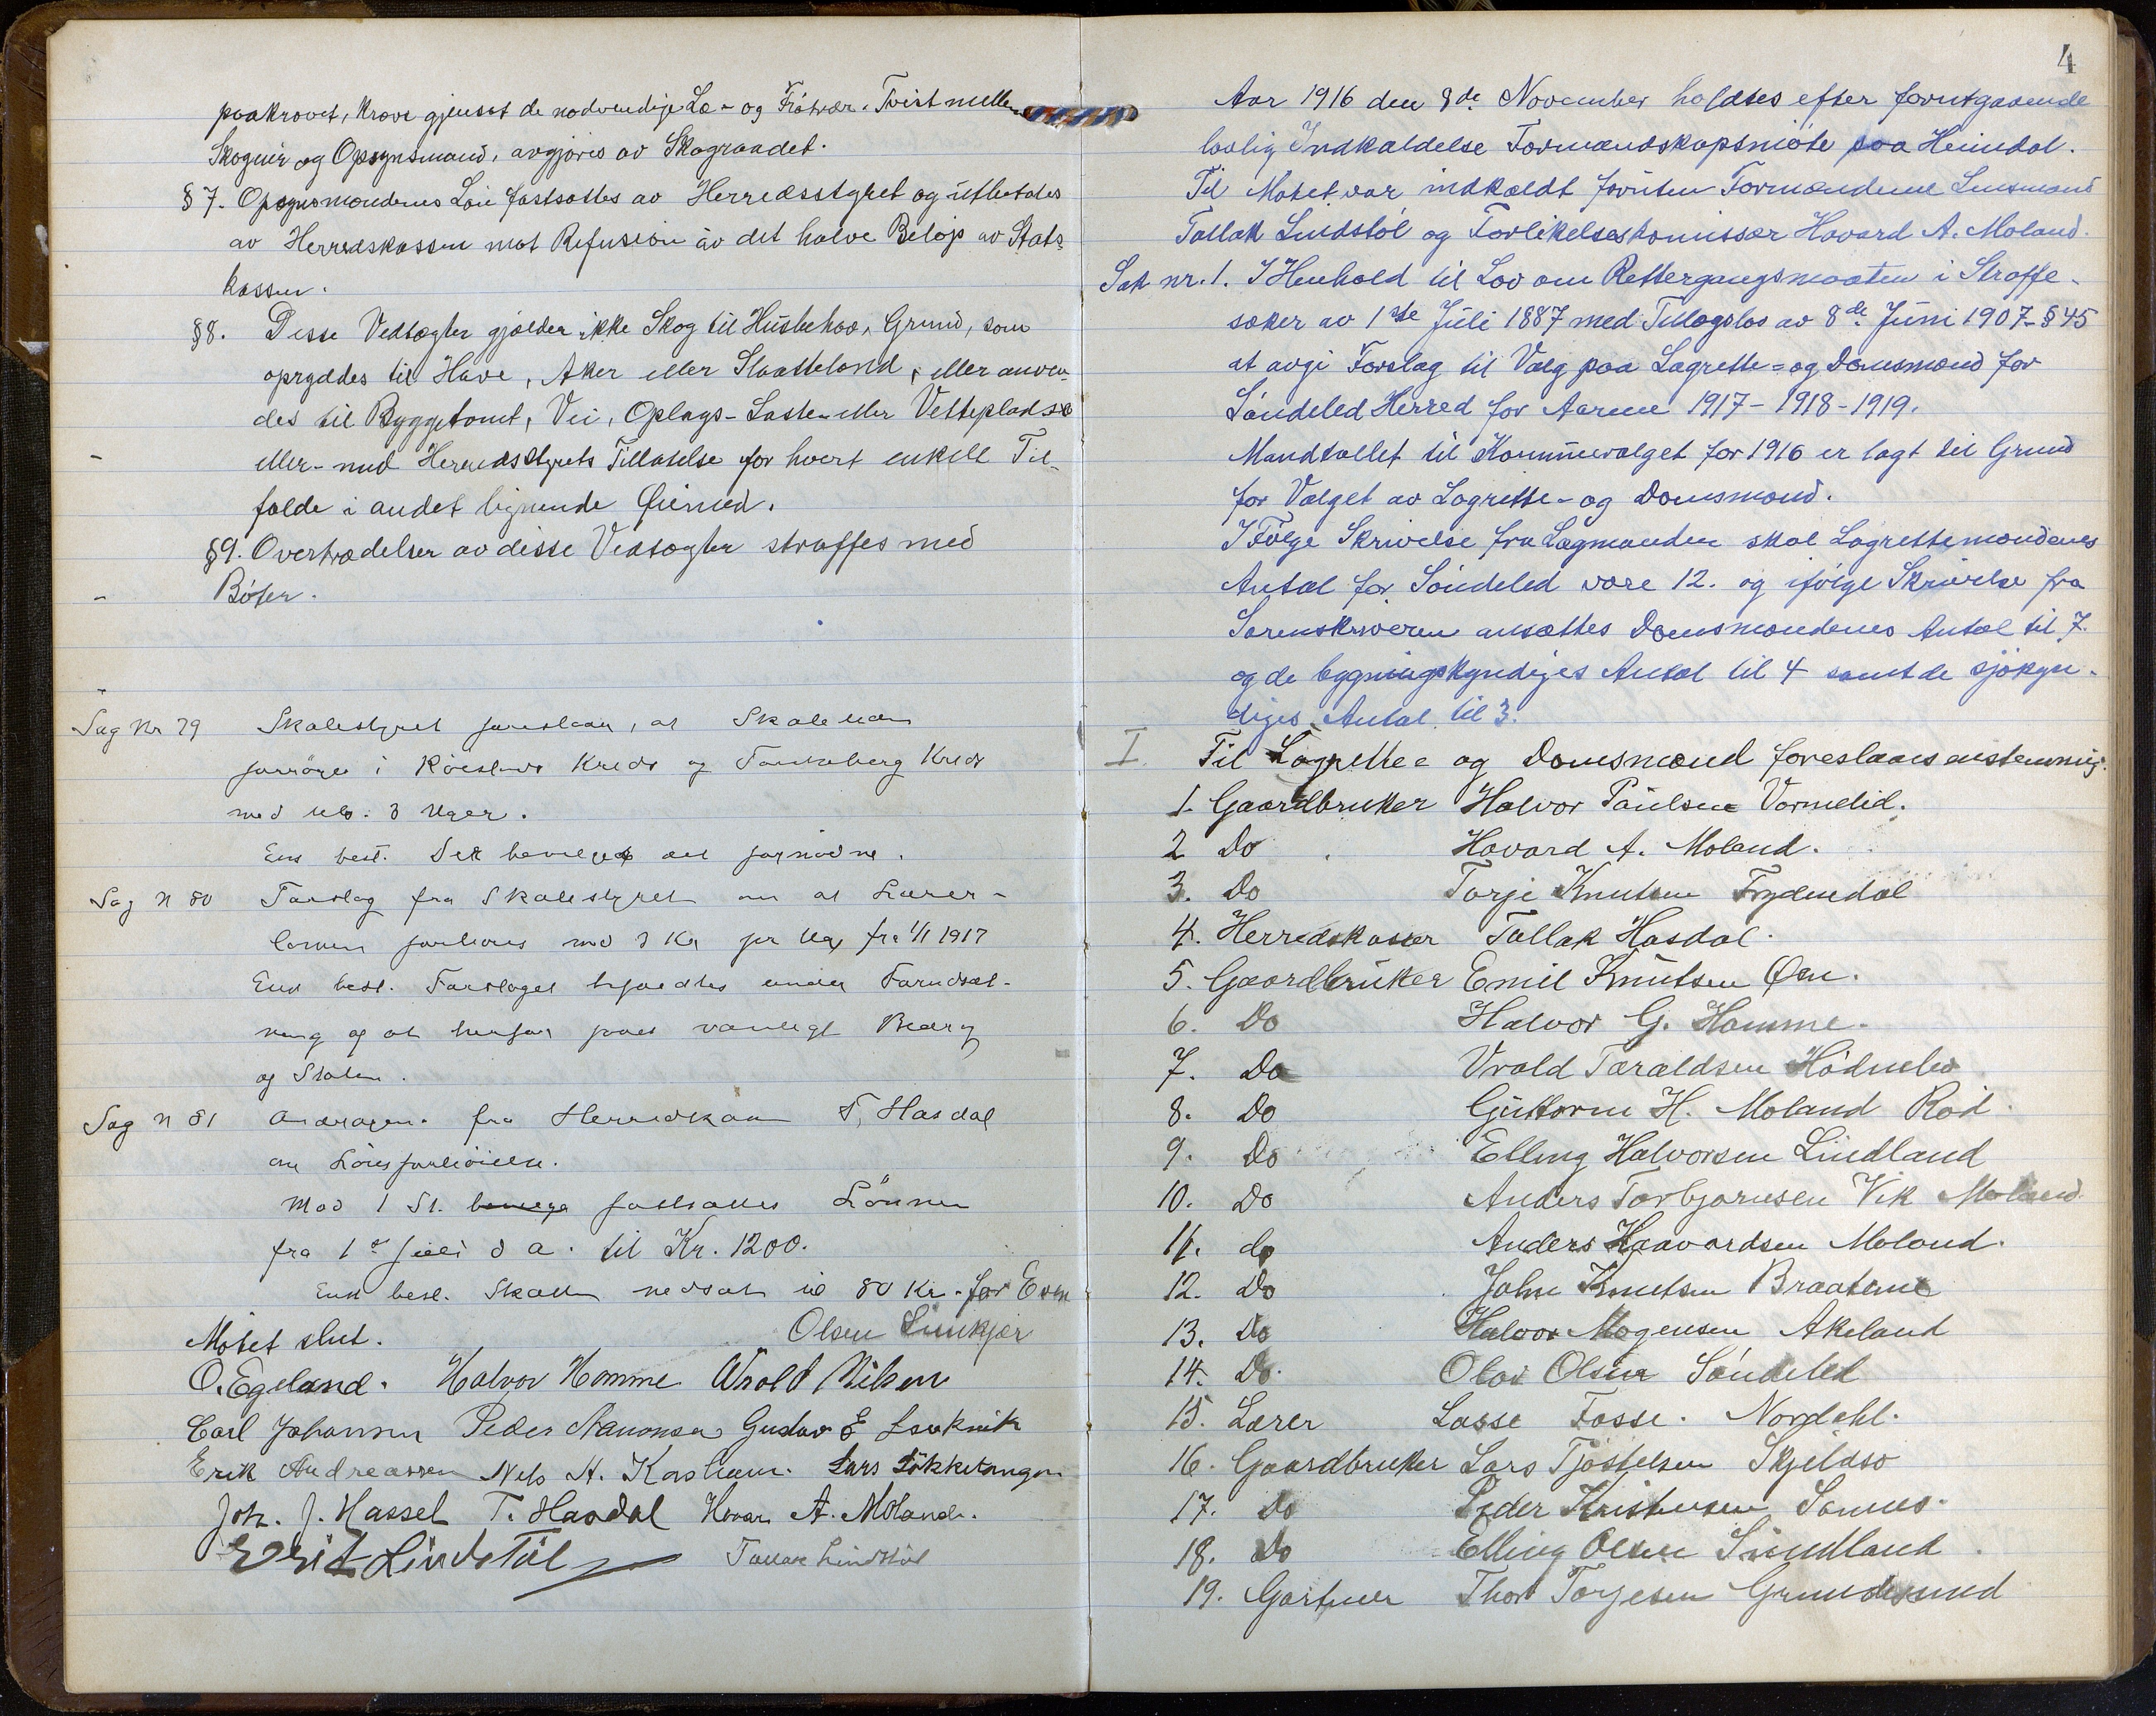 paakrævet, kræve gjensat de nødvendige Læ- og Frøtrær. Tvist mellem
Skogeier og Opsynsmand, avgjøres av Skograadet.
§ 7. Opsynsmændenes Løn fastsættes av Herredsstyret og utbetales
av Herredskassen mot Refusion av det halve Beløp av Stats
kassen.
§8. Disse Vedtægter gjælder ikke Skog til Husbehov, Grund, som
opryddes til Have, Aker eller Slaatteland, eller anven-
des til Byggetomt, Vei, Oplags- Laste- eller Velteplads
eller med Herredsstyrets Tillatelse for hvert enkelt Til-
fælde i andet lignende Øiemed.
§9. Overtrædelser av disse Vedtægter straffes med
Bøter.
Sag Nr 79 Skolestyret foreslaar, at Skoletiden
forøges i Kreds og Kreds
med 3 Uger.
Ens besl. Det bevilges det fornødne.
Sag N 80 Forslag fra Skolestyret om at Lærer-
lønnen forhøies med 3 Kr pr Uge fra 1/1 1917
Ens besl. Forslaget under Forudsæt-
ning og at vanligt Bidrag
og Staten.
Sag N 81 Andragen. fra Herredskas T. Hasdal
om Lønsforhøielse.
Mod 1 St. fastsættes Lønnen
fra 1ste Juli d a. til Kr. 1200.
Ens besl. Skatten nedsat til 80 Kr. for Even
Møtet slut. Olsen
O. Egeland. Halvor Homme Wrold Nilsen
Carl Johannsen Peder Gustav E
Erik Andreassen Nels H. Lars Løkketangen
Joh. J. Hassel T. Hasdal Hovar A. Moland.
Lindstøl Tallak Lindstøl
4
Aar 1916 den 8de November holdtes efter forutgaaende
lovlig Indkaldelse Formandskapsmøte paa Heimdal.
Til Møtet var indkaldt foruten Formændene Lensmand
Tallak Lindstøl og Forlikelseskomissær Hovard A. Moland.
Sak nr. 1. I Henhold til Lov om Rettergangsmaaten i Straffe-
saker av 1ste Juli 1887 med Tillægslov av 8de Juni 1907 - § 45
at avgi Forslag til Valg paa Lagrette- og Domsmænd for
Søndeled Herred for Aarene 1917 - 1918 - 1919.
Mandtallet til Kommunevalget for 1916 er lagt til Grund
for Valget av Lagrette- og Domsmænd.
I Følge Skrivelse fra Lagmanden skal Lagrettemændenes
Antal for Søndeled være 12. og ifølge Skrivelse fra
Sorenskriveren ansættes Domsmændenes Antal til 7.
og de bygningskyndiges Antal til 4 samt de sjøkyn-
diges Antal til 3.
I. Til Lagrette= og Domsmænd foreslaaes enstemmig.
1. Gaardbruker Halvor Paulsen Vormelid.
2 Do Hovard A. Moland.
3. Do Torje Knutsen Frydendal
4. Herredskasser Tallak Hasdal.
5. Gaardbruker Emil Knutsen Øen.
6. Do Halvor G. Homme.
7. Do Vrold Taraldsen Hødnebø
8. Do Guttorm H. Moland Rød.
9. Do Elling Halvorsen Lindland
10. Do Anders Torbjørnsen Vik Moland
11. do Anders Haavardsen Moland.
12. Do John Knutsen Braatene
13. Do Halvor Mogensen Akeland
14. Do. Olav Olsen Søndeled
15. Lærer Lasse Fosse. Nordahl.
16. Gaardbruker Lars Tjøstelsen Skjeldsø
17. Do Peder Kristensen Sannes.
18. Do Elling Olsen Sundland.
19. Gartner Thor Torjesen Grundesund